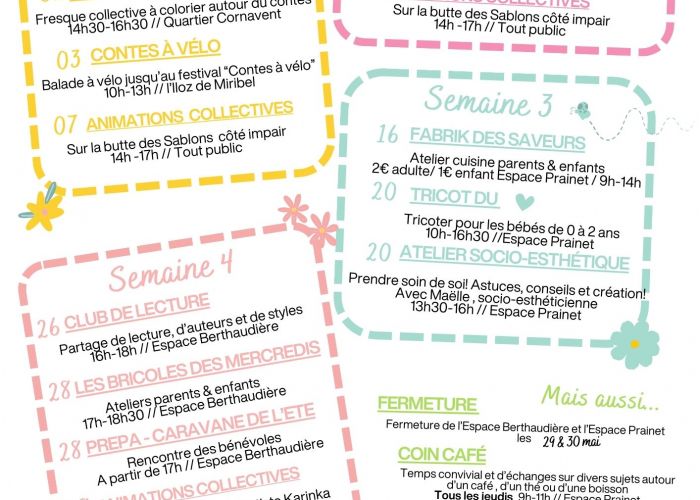 Fresque collective à colorier autour du contes
14h30-16h30 // Quartier Cornavent
03 CONTES À VÉLO
Balade à vélo jusqu'au festival "Contes à vélo"
10h-13h // l'Iloz de Miribel
07 ANIMATIONS COLLECTIVES
Sur la butte des Sablons côté impair
14h -17h // Tout public
Sur la butte des Sablons côté impair
14h -17h // Tout public
Semaine 3
16 FABRIK DES SAVEURS
Atelier cuisine parents & enfants
2€ adulte/ 1€ enfant Espace Prainet / 9h-14h
20 TRICOT DU
Tricoter pour les bébés de 0 à 2 ans
10h-16h30 //Espace Prainet
20 ATELIER SOCIO-ESTHÉTIQUE
Prendre soin de soi! Astuces, conseils et création!
Avec Maëlle , socio-esthéticienne
13h30-16h // Espace Prainet
Semaine 4
26 CLUB DE LECTURE
Partage de lecture, d'auteurs et de styles
16h-18h // Espace Berthaudière
28 LES BRICOLES DES MERCREDIS
Ateliers parents & enfants
17h-18h30 // Espace Berthaudière
28 PREPA - CARAVANE DE L'ETE
Rencontre des bénévoles
A partir de 17h // Espace Berthaudière
ANIMATIONS COLLECTIVES
Karinka
Mais aussi...
FERMETURE
Fermeture de l'Espace Berthaudière et l'Espace Prainet
les 29 & 30 mai
COIN CAFÉ
Temps convivial et d'échanges sur divers sujets autour
d'un café , d'un thé ou d'une boisson
Tous les jeudis 9h-11h // Espace Prainet